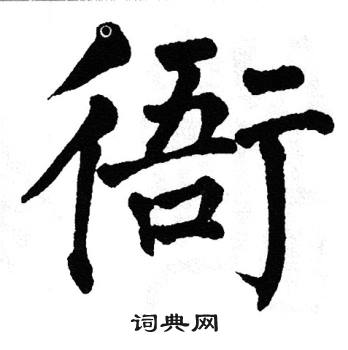 衙
词典网